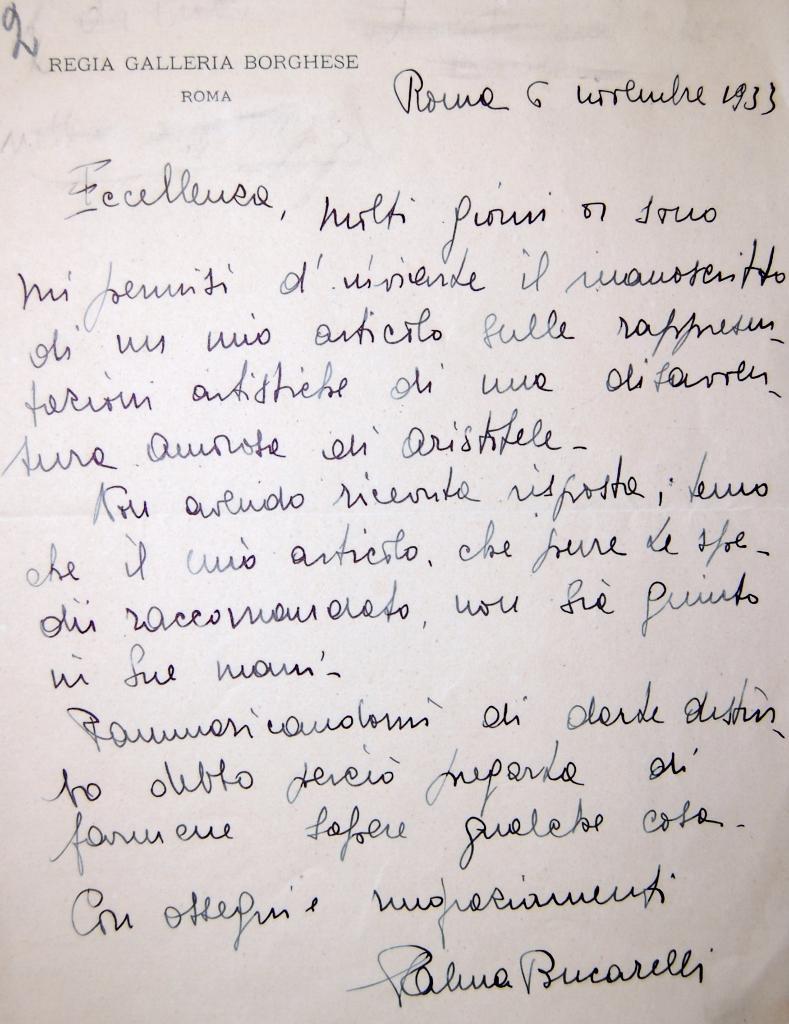 2
REGIA GALLERIA BORGHESE
ROMA
Roma 6 novembre 1933
Eccellenza, molti giorni or sono
mi permisi d'inviarle il manoscritto
di un mio articolo sulle rappresen-
tazioni artistiche di una disavven-
tura amorosa di Aristotele -
Non avendo ricevuta risposta, temo
che il mio articolo, che pure Le spe-
dii raccomandato, non sia giunto
in Sue mani -
Rammaricandomi di darle distur-
bo debbo perciò pregarla di
farmene sapere qualche cosa -
Con ossequi e ringraziamenti
Palma Bucarelli